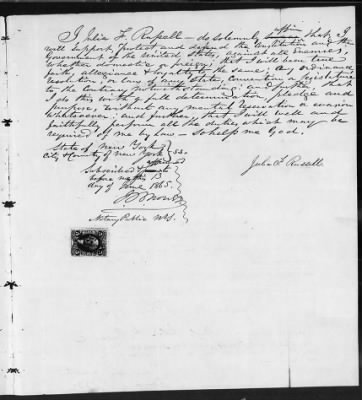 I Julia F. Russell - do solemnly affirm that I
will support, protect and defend the Constitution and the
Government of the United States, against all enemies,
whether domestic or foreign; that I will bear true
faith, allegiance & loyalty to the same, any ordinance
resolution, or law of any State, Convention or Legislature
to the contrary notwithstanding; and further, that
I do this with a full determination, pledge and
purpose, without any mental reservation or evasion
whatsoever; and further, that I will well and
faithfully perform all the duties which may be
required of me by law - So help me God.
State of New York
City & County of New York } ss.
Julia F Russell
Subscribed &
before me this 13
day of June 1865.
Notary Public N.Y.